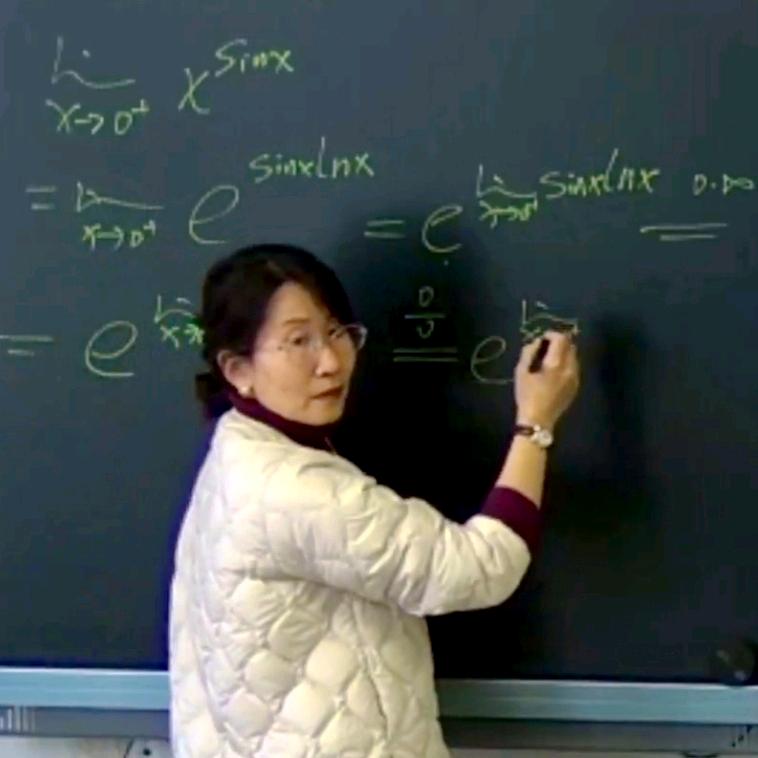 lim x→0⁺ x^sinx
= lim x→0⁺ e^sinxlnx = e^lim x→0⁺ sinxlnx 0·∞ =
= e^lim 0/0 = e^lim